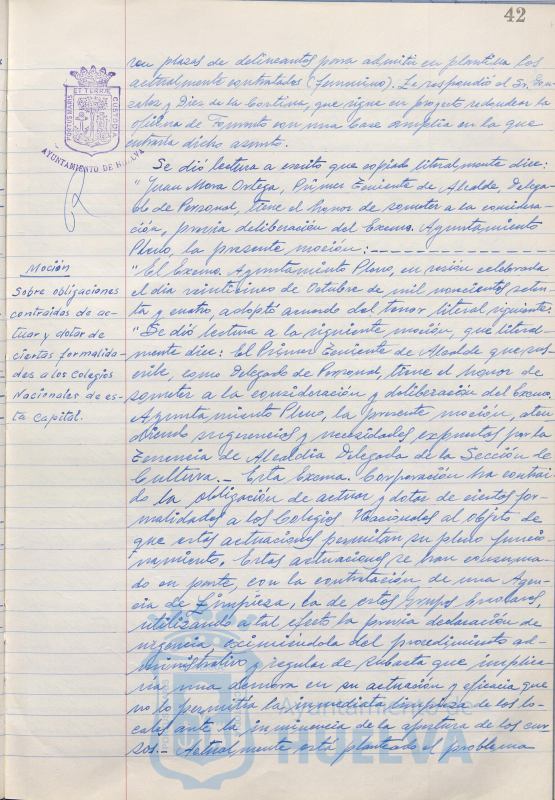 42
ron plazas de delineantes para admitir en plantilla los
actualmente contratados (femenino). Le respondió el Sr. Gon-
zalez y Diez de la Cortina, que sigue en proyecto redondear la
oficina de Fomento con una base amplia en la que
entraría dicho asunto.
PORTUS MARIS ET TERRAE CUSTODIA
AYUNTAMIENTO DE HUELVA
Se dió lectura a escrito que copiado literalmente dice:
"Juan Mora Ortega, Primer Teniente de Alcalde, Delega-
do de Personal, tiene el honor de someter a la considera-
ción, previa deliberación del Excmo. Ayuntamiento
Pleno, la presente moción:
Moción
Sobre obligaciones
contraidas de ac-
tuar y dotar de
ciertas formalida-
des a los Colegios
Nacionales de es-
ta Capital.
"El Excmo. Ayuntamiento Pleno, en sesión celebrada
el dia veinticinco de Octubre de mil novecientos seten-
ta y cuatro, adoptó acuerdo del tenor literal siguiente:
"Se dió lectura a la siguiente moción, que literal-
mente dice: El Primer Teniente de Alcalde que sus-
cribe, como Delegado de Personal, tiene el honor de
someter a la consideración y deliberación del Excmo.
Ayuntamiento Pleno, la presente moción, aten-
diendo sugerencias y necesidades expuestas por la
Tenencia de Alcaldia Delegada de la Sección de
Cultura.- Esta Excma. Corporación ha contrai-
do la obligación de actuar y dotar de ciertas for-
malidades a los Colegios Nacionales al objeto de
que estas actuaciones permitan su pleno funcio-
namiento. Estas actuaciones se han consuma-
do en parte, con la contratación de una Agen-
cia de Limpieza, la de estos Grupos Escolares,
utilizando a tal efecto la previa declaración de
urgencia, eximiéndola del procedimiento ad-
ministrativo y regular de subasta que implica-
ria una demora en su actuación y eficacia que
no permitía la inmediata limpieza de los lo-
cales ante la inminencia de la apertura de los cur-
sos.- Actualmente está planteado el problema
Ayuntamiento de
HUELVA